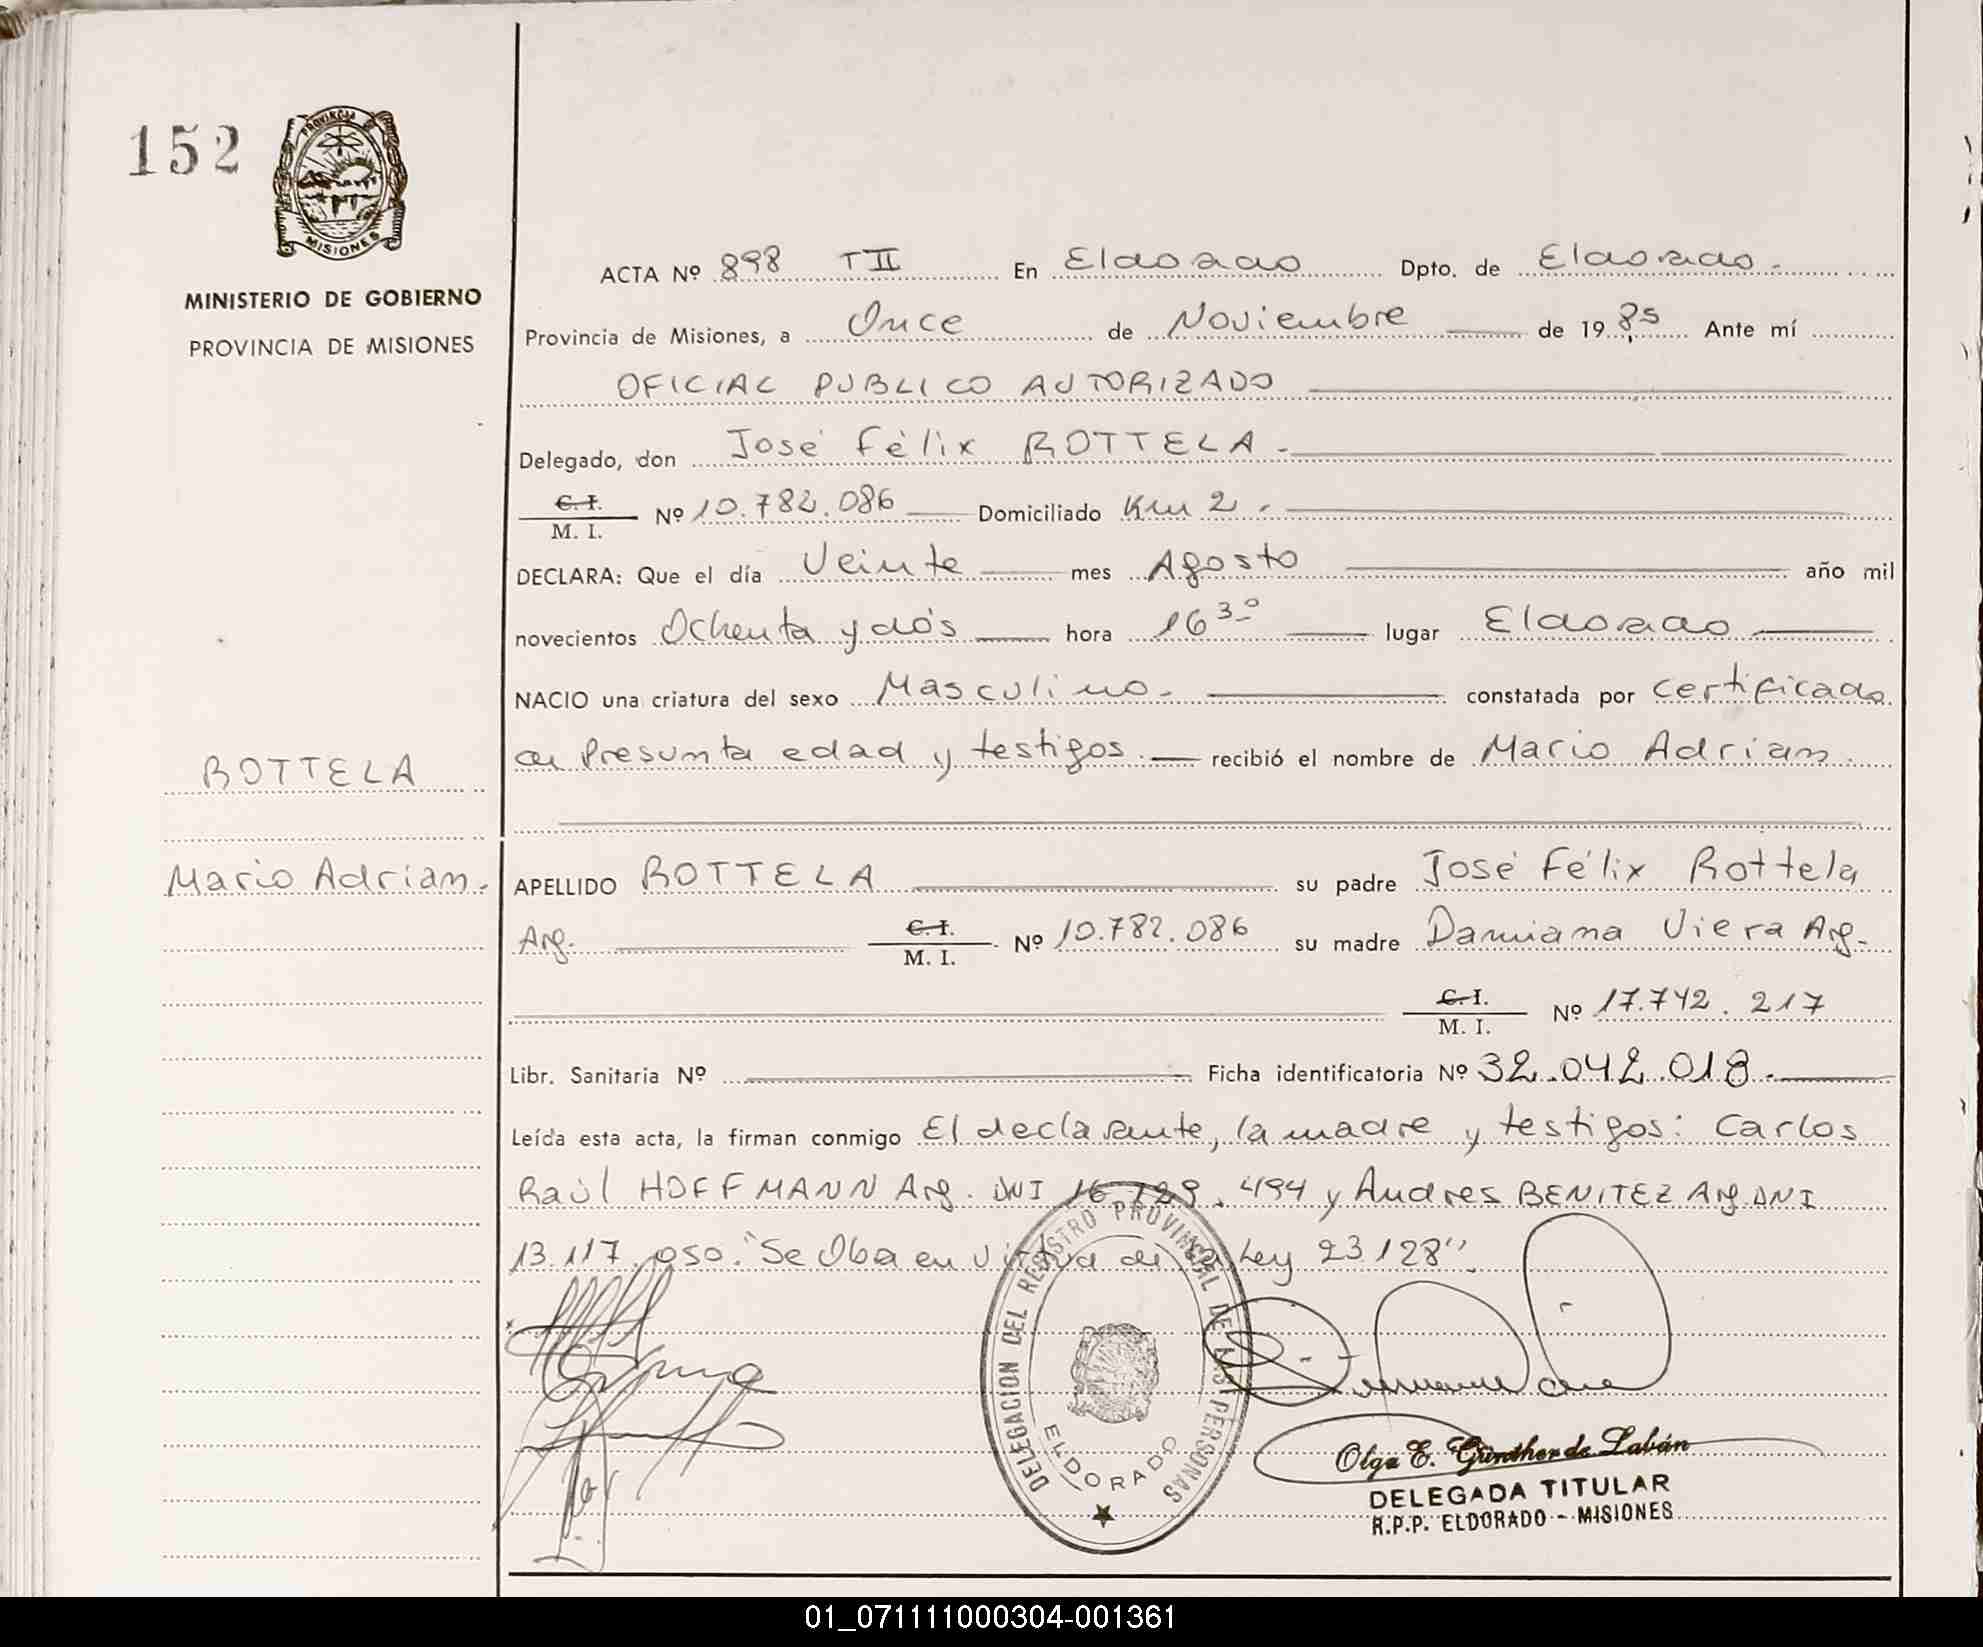 152
PROVINCIA
MISIONES
MINISTERIO DE GOBIERNO
PROVINCIA DE MISIONES
ACTA Nº 898 T II En Eldorado Dpto. de Eldorado.
Provincia de Misiones, a Once de Noviembre de 1985 Ante mí
OFICIAL PUBLICO AUTORIZADO
Delegado, don José Félix ROTTELA.
C. I.
M. I. Nº 10.782.086 Domiciliado Km 2.
DECLARA: Que el día Veinte mes Agosto año mil
novecientos Ochenta y dós hora 16 30 lugar Eldorado
NACIO una criatura del sexo Masculino. constatada por Certificado
de Presunta edad y testigos. recibió el nombre de Mario Adrian.
ROTTELA
Mario Adrian.
APELLIDO ROTTELA su padre José Félix Rottela
Arg. C. I.
M. I. Nº 10.782.086 su madre Damiana Viera Arg.
C. I.
M. I. Nº 17.742.217
Libr. Sanitaria Nº Ficha identificatoria Nº 32.042.018.
Leída esta acta, la firman conmigo El declarante, la madre y testigos: Carlos
Raúl HOFFMANN Arg. DNI 16.129.494 y Andres BENITEZ Arg. DNI
13.117.050. "Se en de Ley 23128".
DELEGACION DEL REGISTRO PROVINCIAL DE LAS PERSONAS
ELDORADO
Olga E. Günther de Labán
DELEGADA TITULAR
R.P.P. ELDORADO - MISIONES
01_071111000304-001361